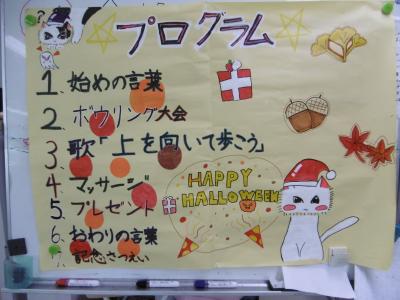 プログラム
1、始めの言葉
2、ボウリング大会
3、歌「上を向いて歩こう」
4、マッサージ
5、プレゼント
6、おわりの言葉
7、記念さつえい
HAPPY
HALLOWEEN